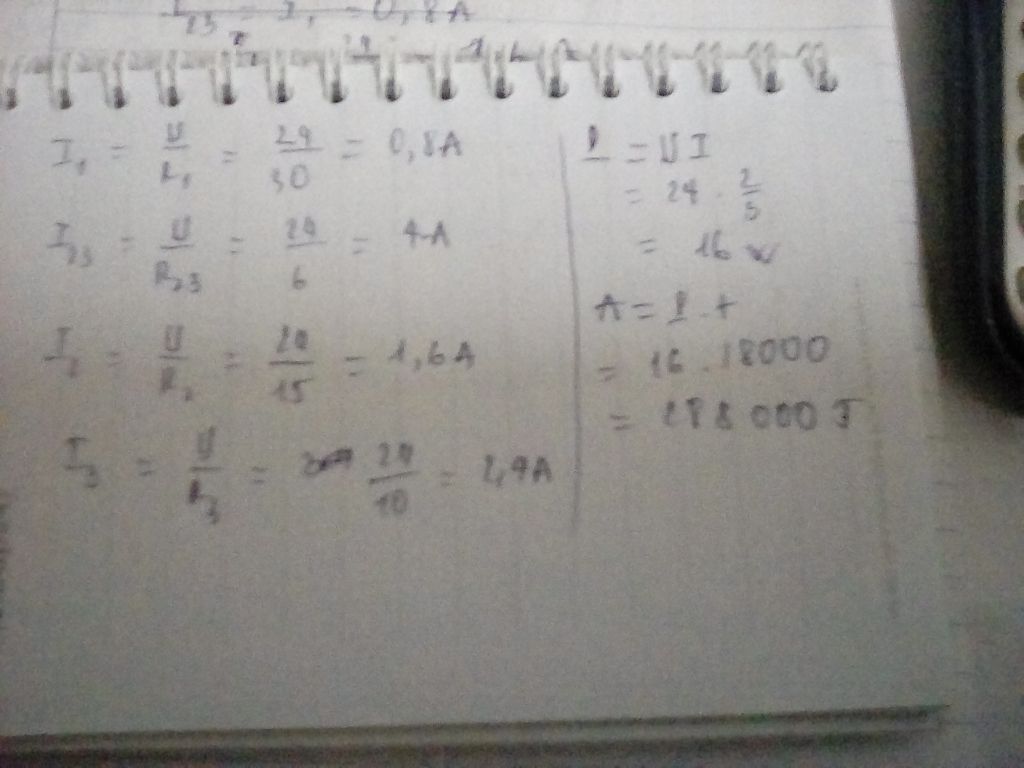 I₂₃ = I₁ = 0,8A
I₁ = U/R₁ = 24/30 = 0,8A
I₂₃ = U/R₂₃ = 24/6 = 4A
I₂ = U/R₂ = 24/15 = 1,6A
I₃ = U/R₃ = 24/10 = 2,4A
P = UI
= 24 . 2/3
= 16 W
A = P . t
= 16 . 18000
= 288 000 J